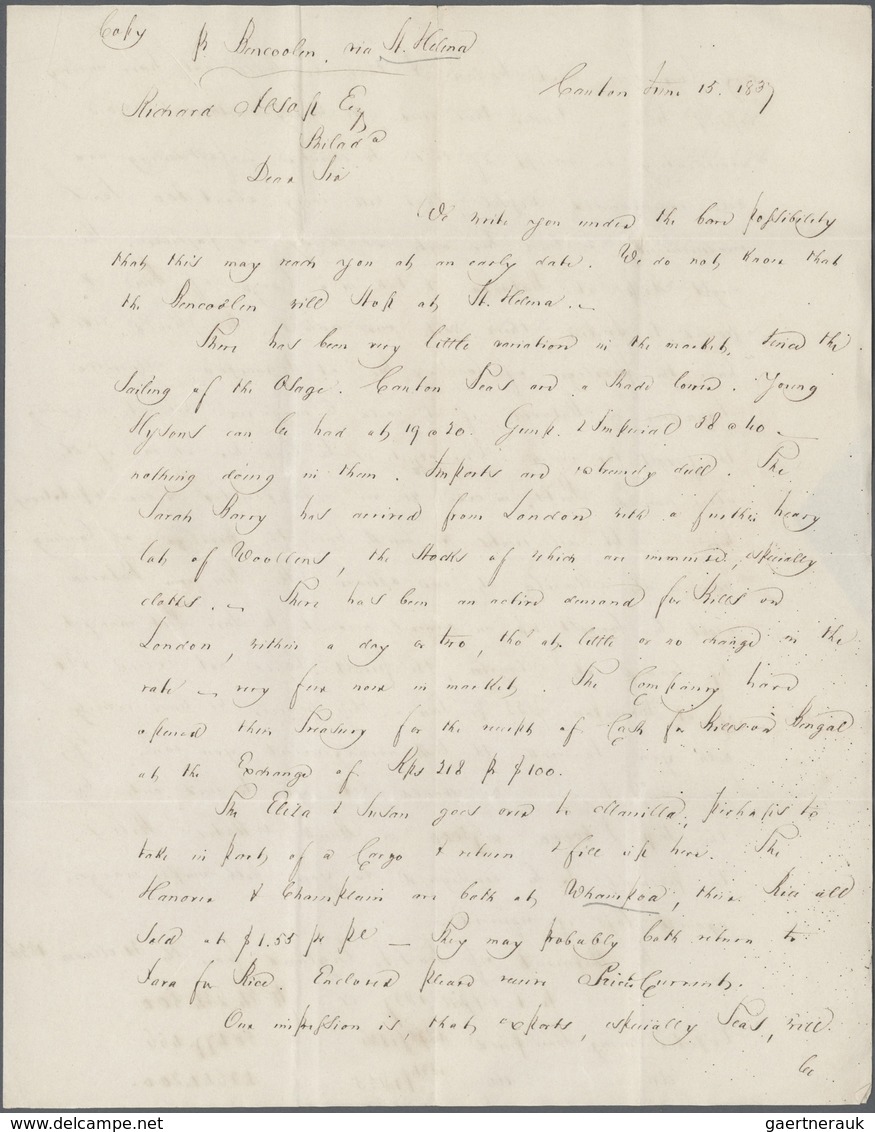 Copy
pr Bencoolen, via St. Helena
Canton June 15. 1837
Richard Alsop Esq
Philada
Dear Sir
We write you under the bare possibility
that this may reach you at an early date. We do not know that
the Bencoolen will stop at St. Helena. —
There has been very little variation in the market, since the
sailing of the Osage. Canton Teas are a shade lower. Young
Hysons can be had at 19 @ 20. Gunp. & Imperial 38 @ 40 —
nothing doing in them. Imports are extremely dull. The
Sarah Barry has arrived from London with a further heavy
lot of Woollens, the stocks of which are immense, especially
cloths. — There has been an active demand for Bills on
London, within a day or two, tho' at little or no change in the
rate — very few now in market. The Company have
opened their Treasury for the receipt of Cash for Bills on Bengal
at the Exchange of Rps 218 pr $100.
The Eliza & Susan goes over to Manilla, perhaps to
take in part of a Cargo & return & fill up here. The
Hanover & Champlain are both at Whampoa, their Rice all
sold at $1.55 pr pl — They may probably both return to
Java for Rice. Enclosed please receive Price Current.
Our impression is, that exports, especially Teas, will
be
gaertnerauk